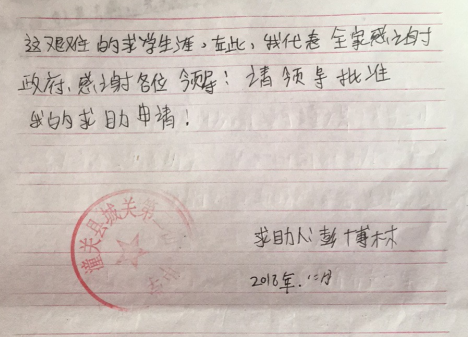 这艰难的求学生涯，在此，我代表全家感谢
政府，感谢各位领导！请领导批准
我的求助申请！
潼关县城关第
求助人：彭博林